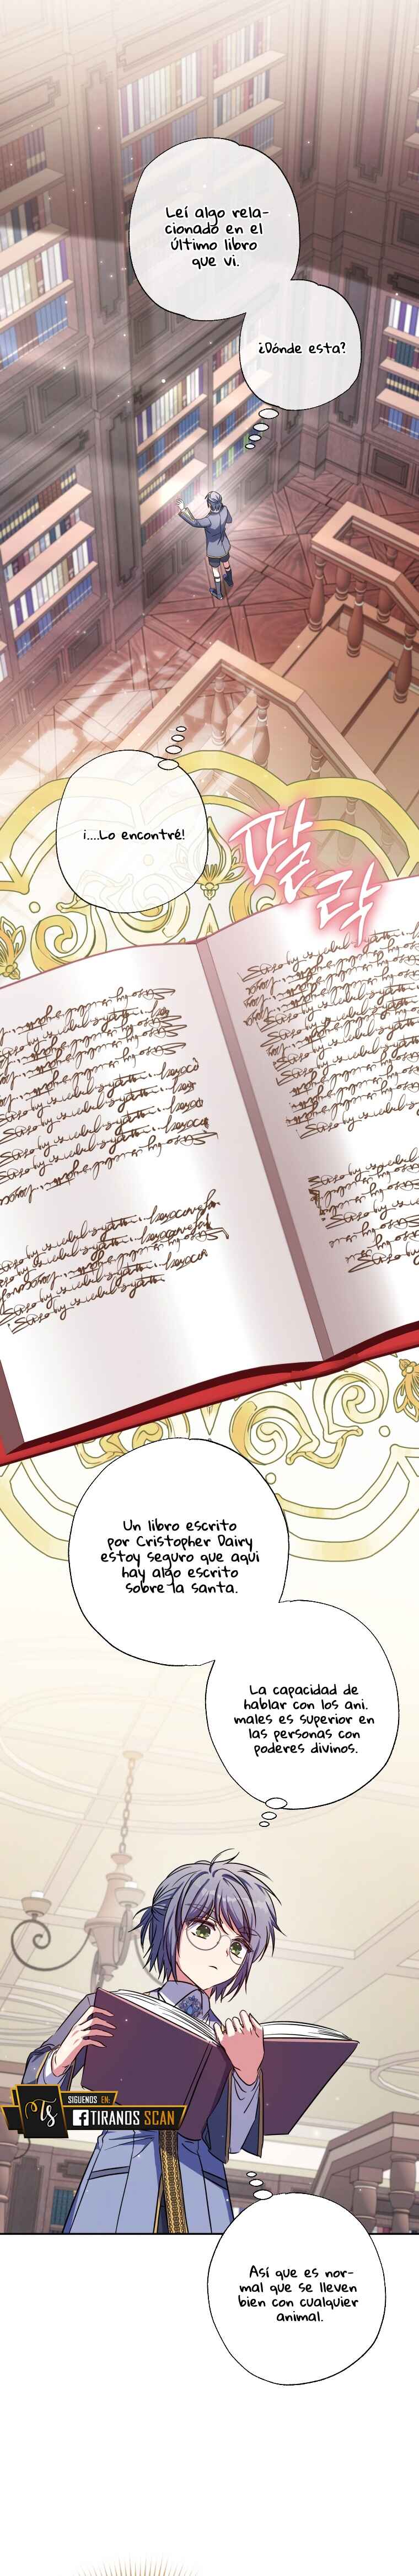 Leí algo rela-
cionado en el
último libro
que vi.
¿Dónde esta?
¡....Lo encontré!
팔
락
Un libro escrito
por Cristopher Dairy
estoy seguro que aqui
hay algo escrito
sobre la santa.
La capacidad de
hablar con los ani.
males es superior en
las personas con
poderes divinos.
SIGUENOS EN:
TIRANOS SCAN
TS
Así que es nor-
mal que se lleven
bien con cualquier
animal.